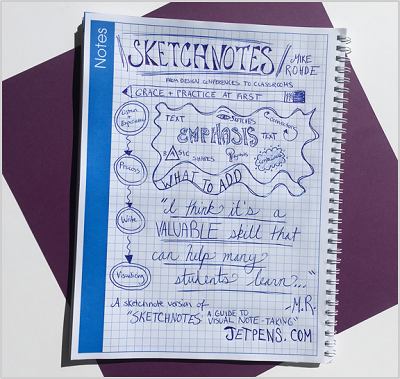 Notes
SKETCHNOTES
MIKE
ROHDE
FROM DESIGN CONFERENCES TO CLASSROOMS
GRACE + PRACTICE AT FIRST
Process
Write
Visualizing
TEXT
SKETCHES
Connectors
EMPHASIS
TEXT
BASIC
SHAPES
Figures
WHAT TO ADD
"I think it's a
VALUABLE skill that
can help many
students learn..."
-M.R.
A sketchnote version of
"SKETCHNOTES: A GUIDE TO
VISUAL NOTE-TAKING"
JETPENS.COM